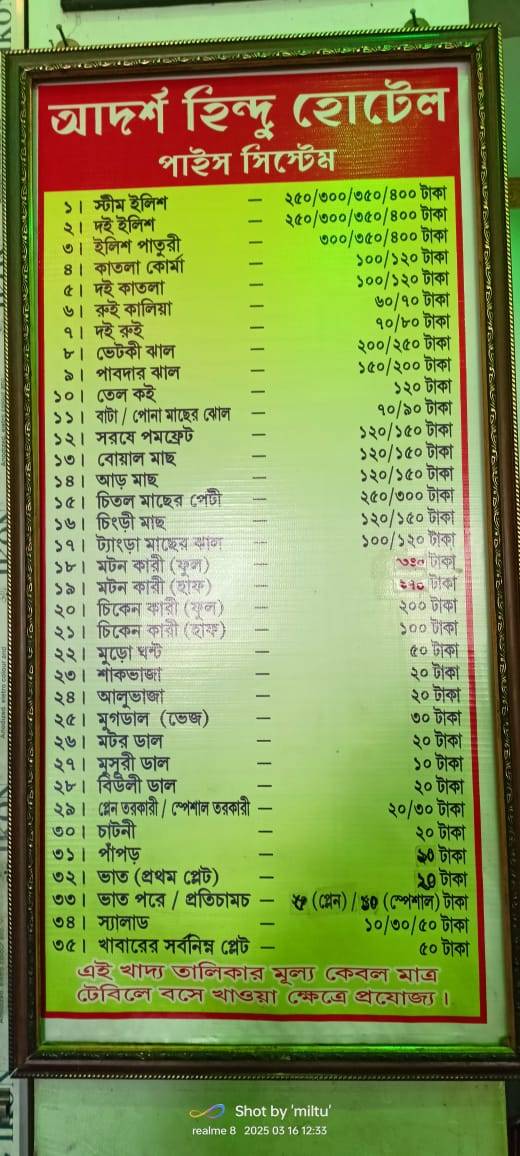 আদর্শ হিন্দু হোটেল
পাইস সিস্টেম
১। স্টীম ইলিশ — ২৫০/৩০০/৩৫০/৪০০ টাকা
২। দই ইলিশ — ২৫০/৩০০/৩৫০/৪০০ টাকা
৩। ইলিশ পাতুরী — ৩০০/৩৫০/৪০০ টাকা
৪। কাতলা কোর্মা — ১০০/১২০ টাকা
৫। দই কাতলা — ১০০/১২০ টাকা
৬। রুই কালিয়া — ৬০/৭০ টাকা
৭। দই রুই — ৭০/৮০ টাকা
৮। ভেটকী ঝাল — ২০০/২৫০ টাকা
৯। পাবদার ঝাল — ১৫০/২০০ টাকা
১০। তেল কই — ১২০ টাকা
১১। বাটা / পোনা মাছের ঝোল — ৭০/৯০ টাকা
১২। সরষে পমফ্রেট — ১২০/১৫০ টাকা
১৩। বোয়াল মাছ — ১২০/১৫০ টাকা
১৪। আড় মাছ — ১২০/১৫০ টাকা
১৫। চিতল মাছের পেটী — ২৫০/৩০০ টাকা
১৬। চিংড়ী মাছ — ১২০/১৫০ টাকা
১৭। ট্যাংড়া মাছের ঝাল — ১০০/১২০ টাকা
১৮। মটন কারী (ফুল) — টাকা
১৯। মটন কারী (হাফ) — টাকা
২০। চিকেন কারী (ফুল) — ২০০ টাকা
২১। চিকেন কারী (হাফ) — ১০০ টাকা
২২। মুড়ো ঘন্ট — ৫০ টাকা
২৩। শাকভাজা — ২০ টাকা
২৪। আলুভাজা — ২০ টাকা
২৫। মুগডাল (ভেজ) — ৩০ টাকা
২৬। মটর ডাল — ২০ টাকা
২৭। মুসুরী ডাল — ১০ টাকা
২৮। বিউলী ডাল — ২০ টাকা
২৯। প্লেন তরকারী / স্পেশাল তরকারী — ২০/৩০ টাকা
৩০। চাটনী — ২০ টাকা
৩১। পাঁপড় — টাকা
৩২। ভাত (প্রথম প্লেট) — টাকা
৩৩। ভাত পরে / প্রতিচামচ — (প্লেন) / (স্পেশাল) টাকা
৩৪। স্যালাড — ১০/৩০/৫০ টাকা
৩৫। খাবারের সর্বনিম্ন প্লেট — ৫০ টাকা
এই খাদ্য তালিকার মূল্য কেবল মাত্র
টেবিলে বসে খাওয়া ক্ষেত্রে প্রযোজ্য।
Shot by 'miltu'
realme 8 2025 03 16 12:33